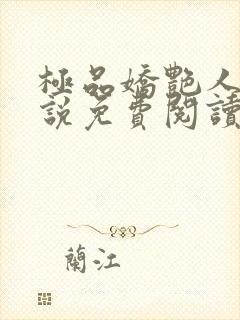 極品嬌艷人
說免費閱讀
蘭江